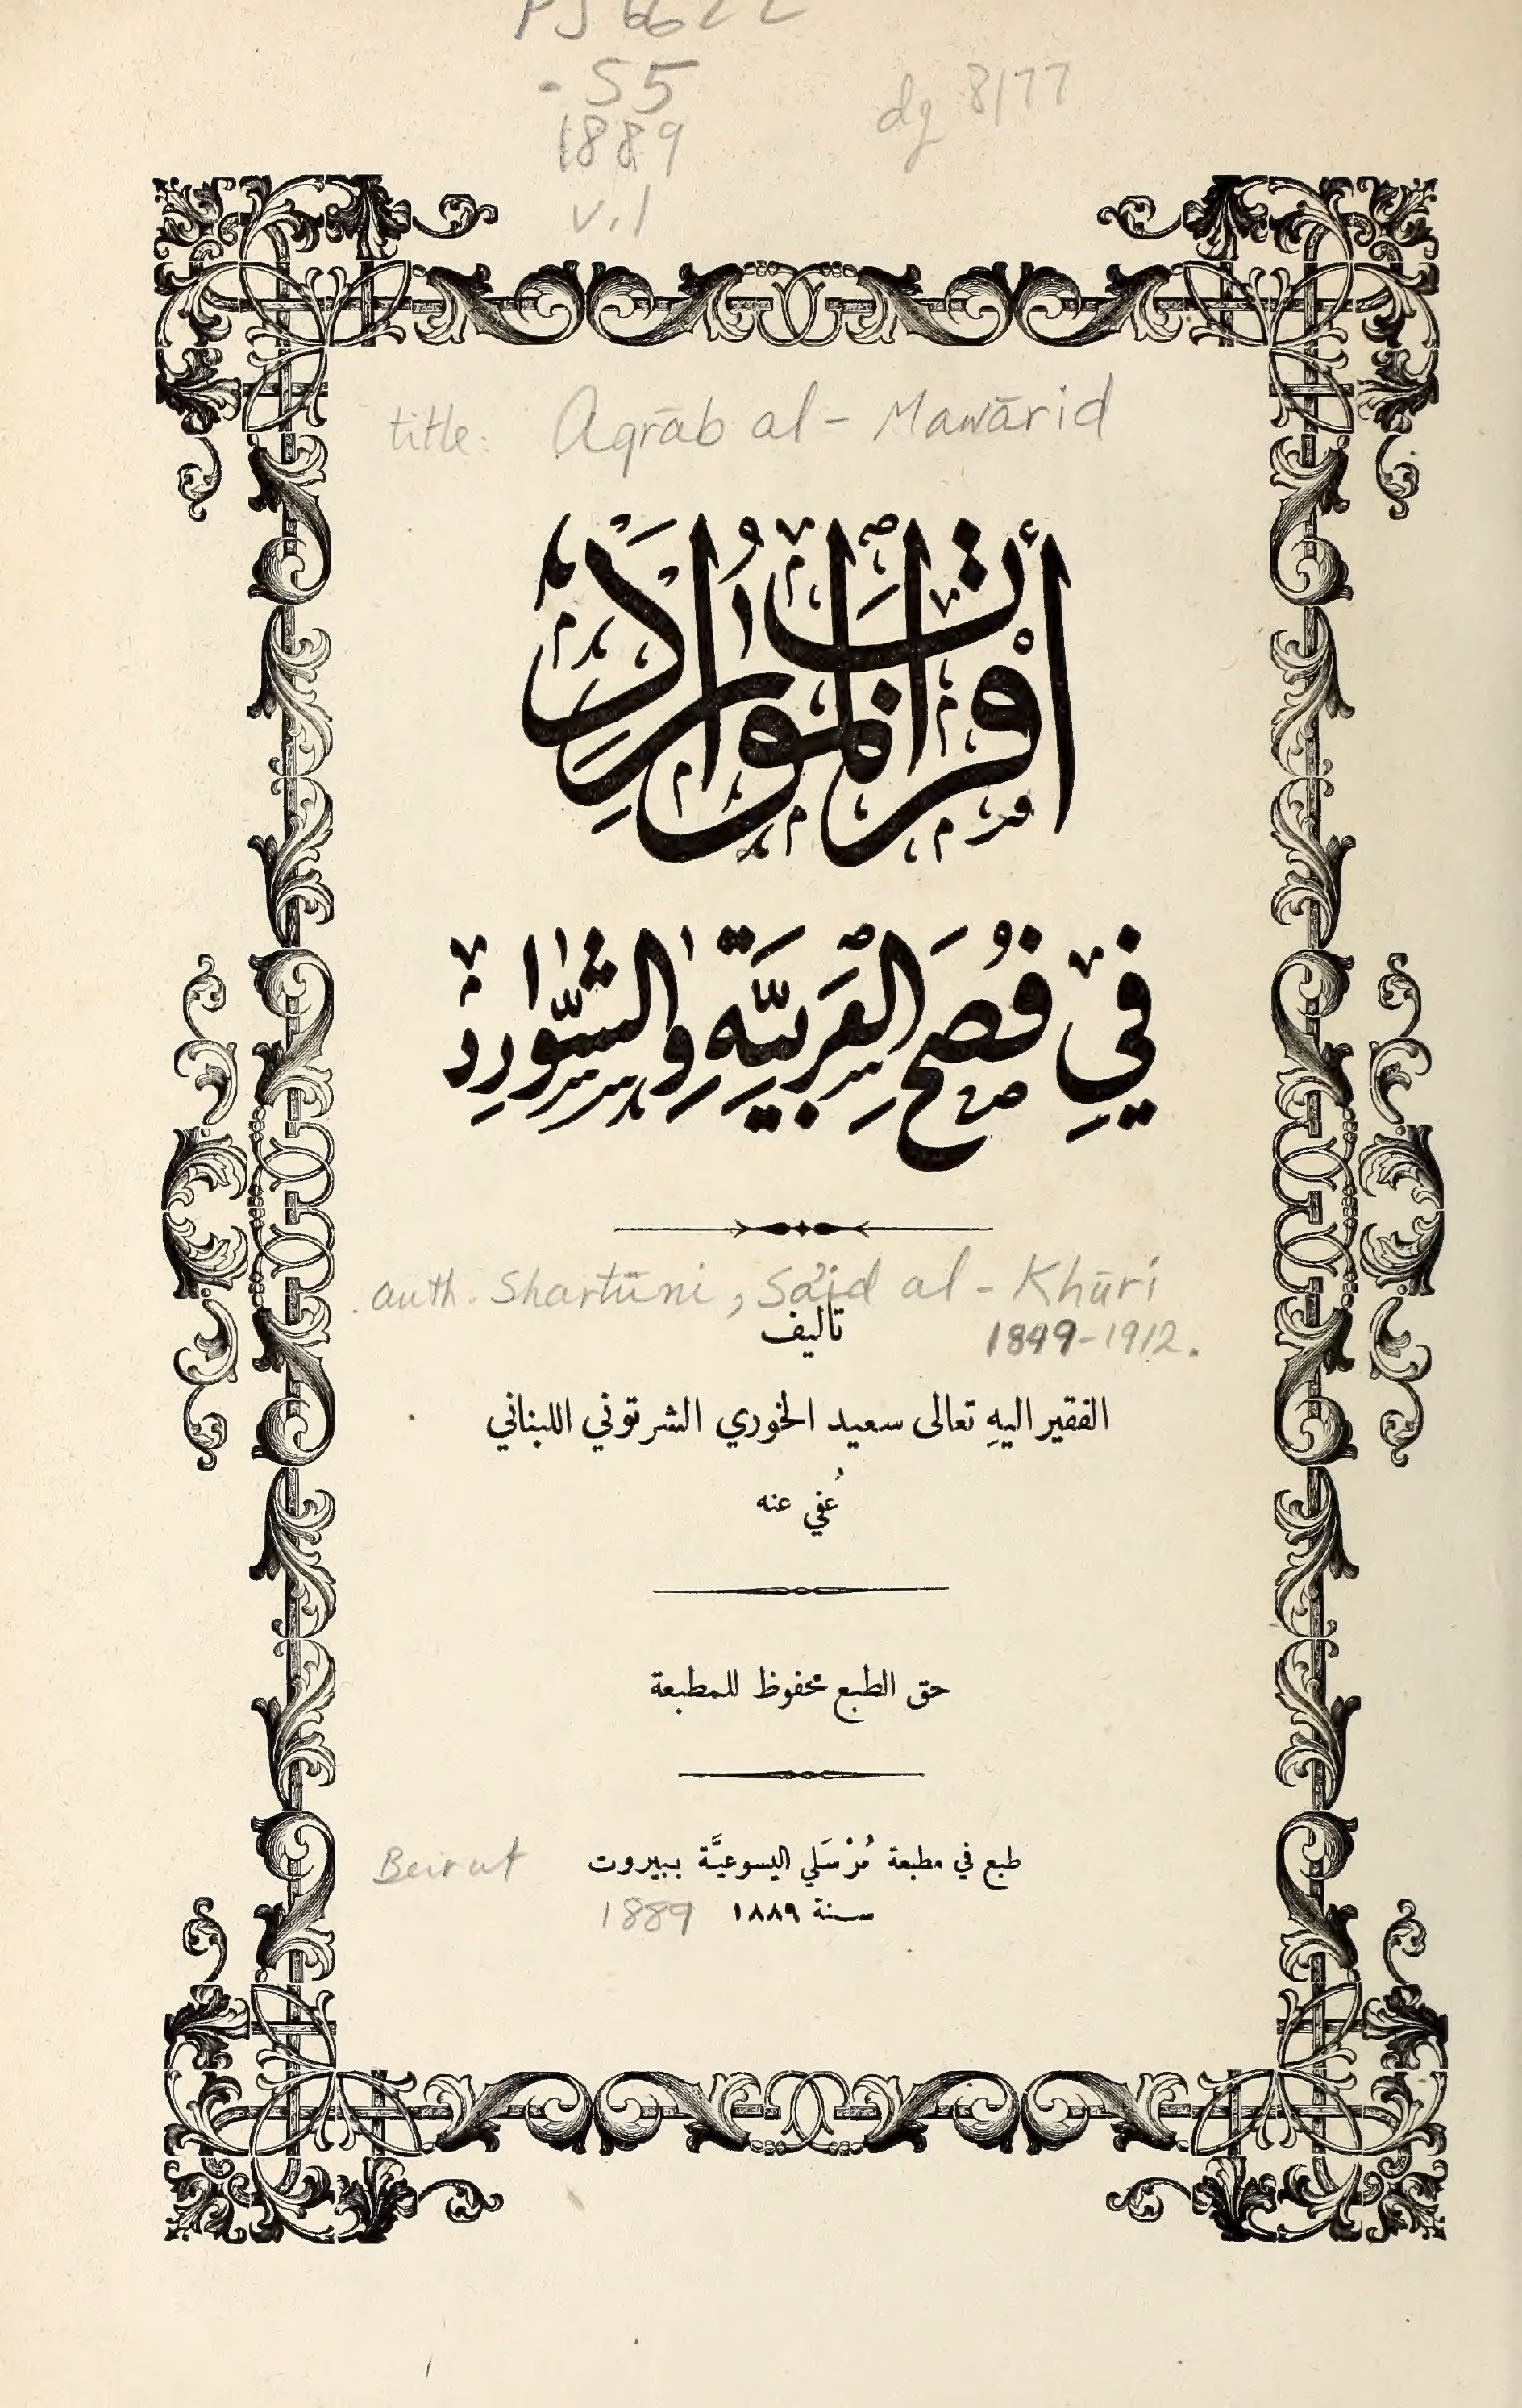 PJ 6622
.S5
1889
v.1
dg 8/77
title: Aqrāb al-Mawārid
أقرب الموارد
في فُصَح العَرَبيَّة والشَّوارِد
auth. Shartūni, Sa'id al-Khūri
1849-1912.
تاليف
الفقير اليهِ تعالى سعيد الخوري الشرتوني اللبناني
عُفي عنه
حق الطبع محفوظ للمطبعة
طبع في مطبعة مُرْسَلي اليسوعيَّة ببيروت
Beirut
سنة ١٨٨٩
1889